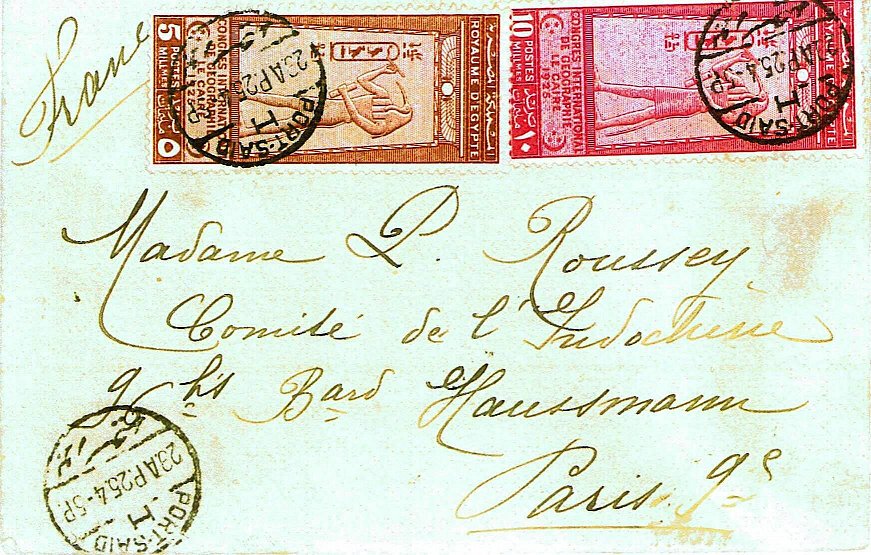 France
5 POSTES MILLIEMES
CONGRES INTERNATIONAL
DE GEOGRAPHIE
LE CAIRE
1925
ROYAUME D'EGYPTE
٥
10 POSTES MILLIEMES
CONGRES INTERNATIONAL
DE GEOGRAPHIE
LE CAIRE
1925
١٠
PORT-SAID
23 AP 25
PORT-SAID
23 AP 25. 4-5 P
Madame P. Roussey
Comité de l'Indochine
Bard Haussmann
Paris 9e
PORT-SAID
23 AP 25. 4-5 P